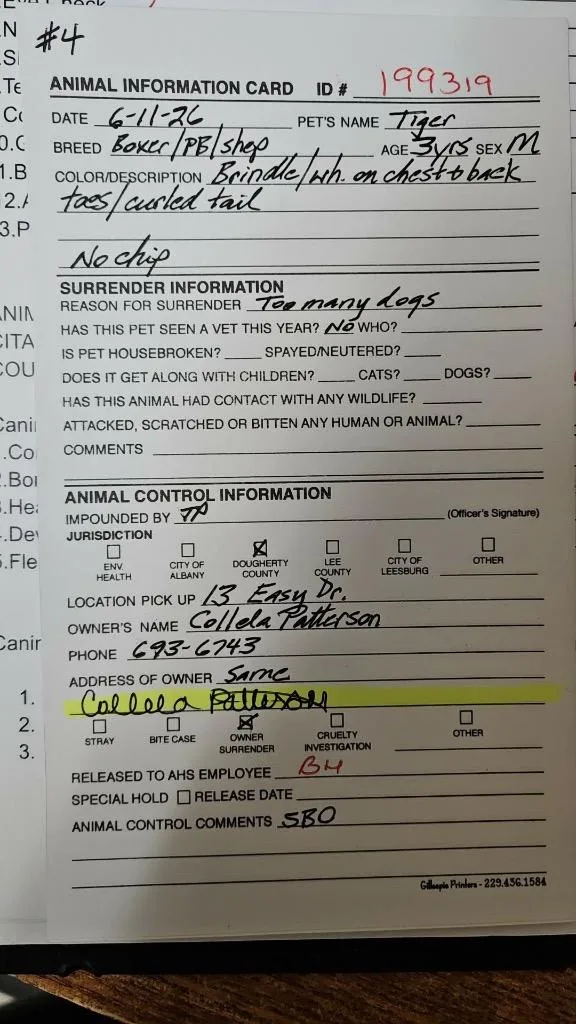 #4
ANIMAL INFORMATION CARD ID # 199319
DATE 6-11-26 PET'S NAME Tiger
BREED Boxer/PB/shep AGE 3yrs SEX M
COLOR/DESCRIPTION Brindle/wh. on chest & back
toes/curled tail
No chip
SURRENDER INFORMATION
REASON FOR SURRENDER Too many dogs
HAS THIS PET SEEN A VET THIS YEAR? NO WHO?
IS PET HOUSEBROKEN? SPAYED/NEUTERED?
DOES IT GET ALONG WITH CHILDREN? CATS? DOGS?
HAS THIS ANIMAL HAD CONTACT WITH ANY WILDLIFE?
ATTACKED, SCRATCHED OR BITTEN ANY HUMAN OR ANIMAL?
COMMENTS
ANIMAL CONTROL INFORMATION
IMPOUNDED BY (Officer's Signature)
JURISDICTION
ENV. HEALTH CITY OF ALBANY DOUGHERTY COUNTY LEE COUNTY CITY OF LEESBURG OTHER
LOCATION PICK UP 13 Easy Dr.
OWNER'S NAME Collela Patterson
PHONE 693-6743
ADDRESS OF OWNER Same
Collela Patterson
STRAY BITE CASE OWNER SURRENDER CRUELTY INVESTIGATION OTHER
RELEASED TO AHS EMPLOYEE BH
SPECIAL HOLD RELEASE DATE
ANIMAL CONTROL COMMENTS SBO
Gillespie Printers - 229.436.1584